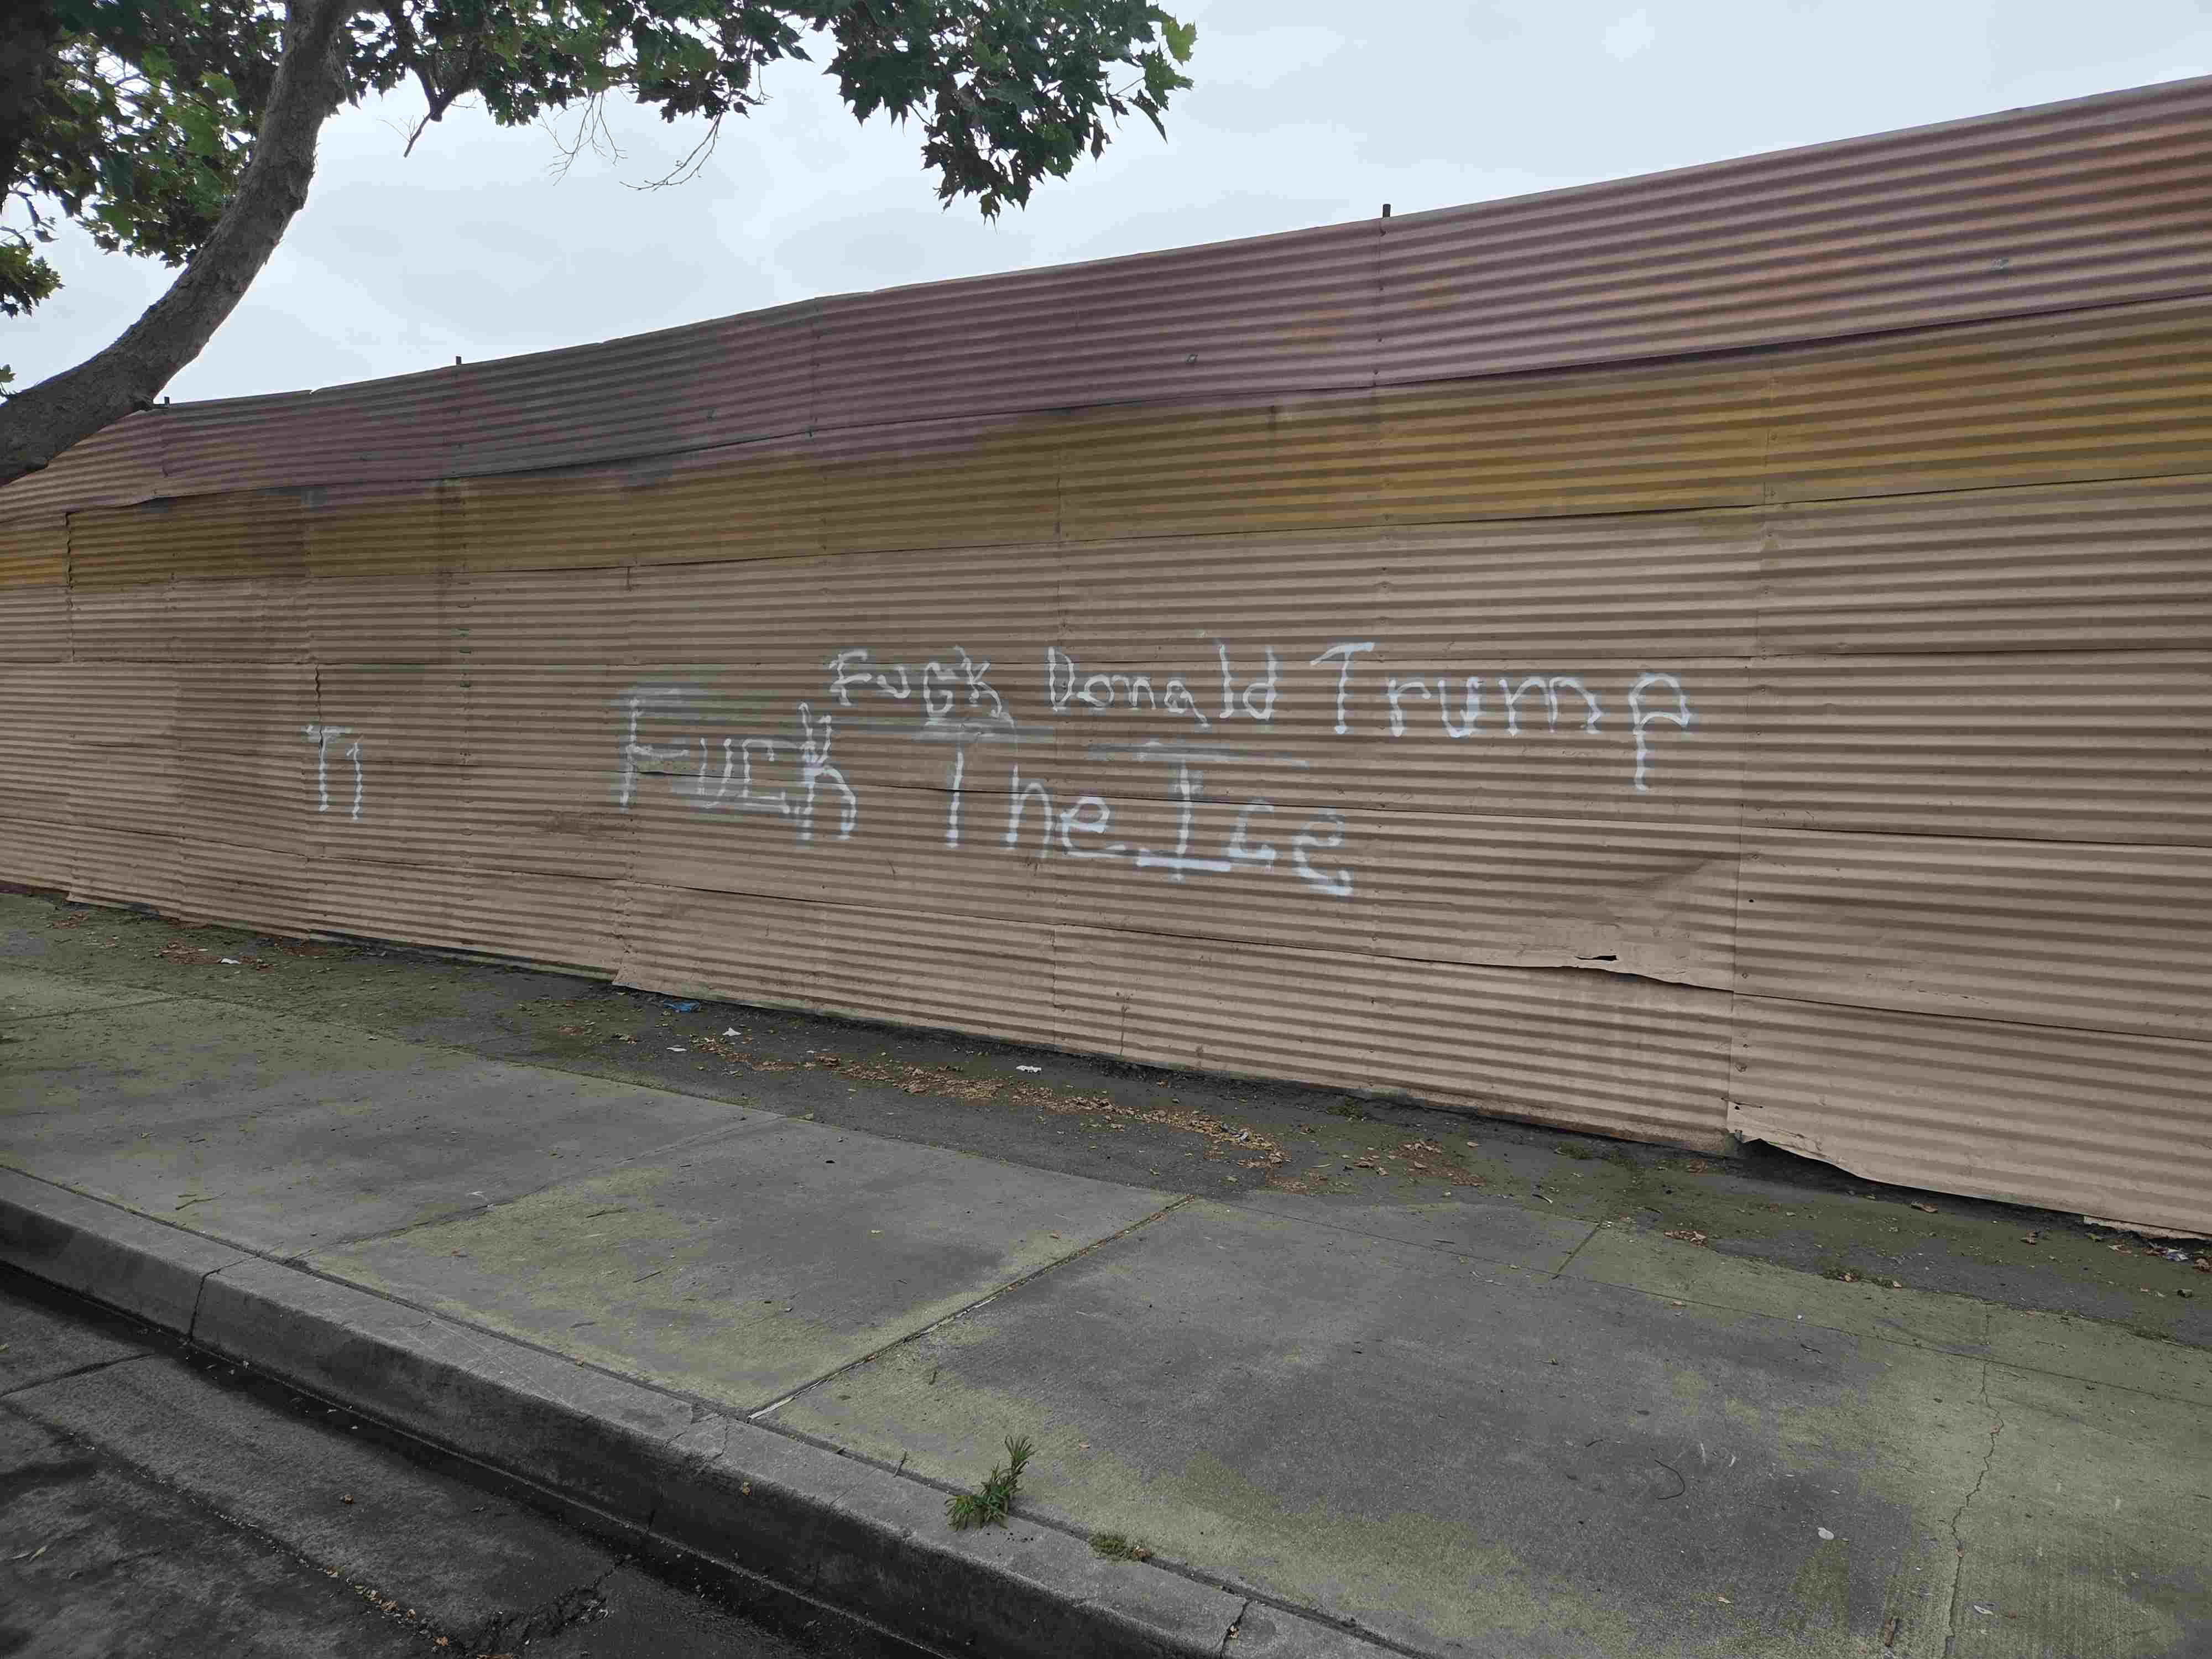 Fuck Donald Trump
T1
Fuck The Ice